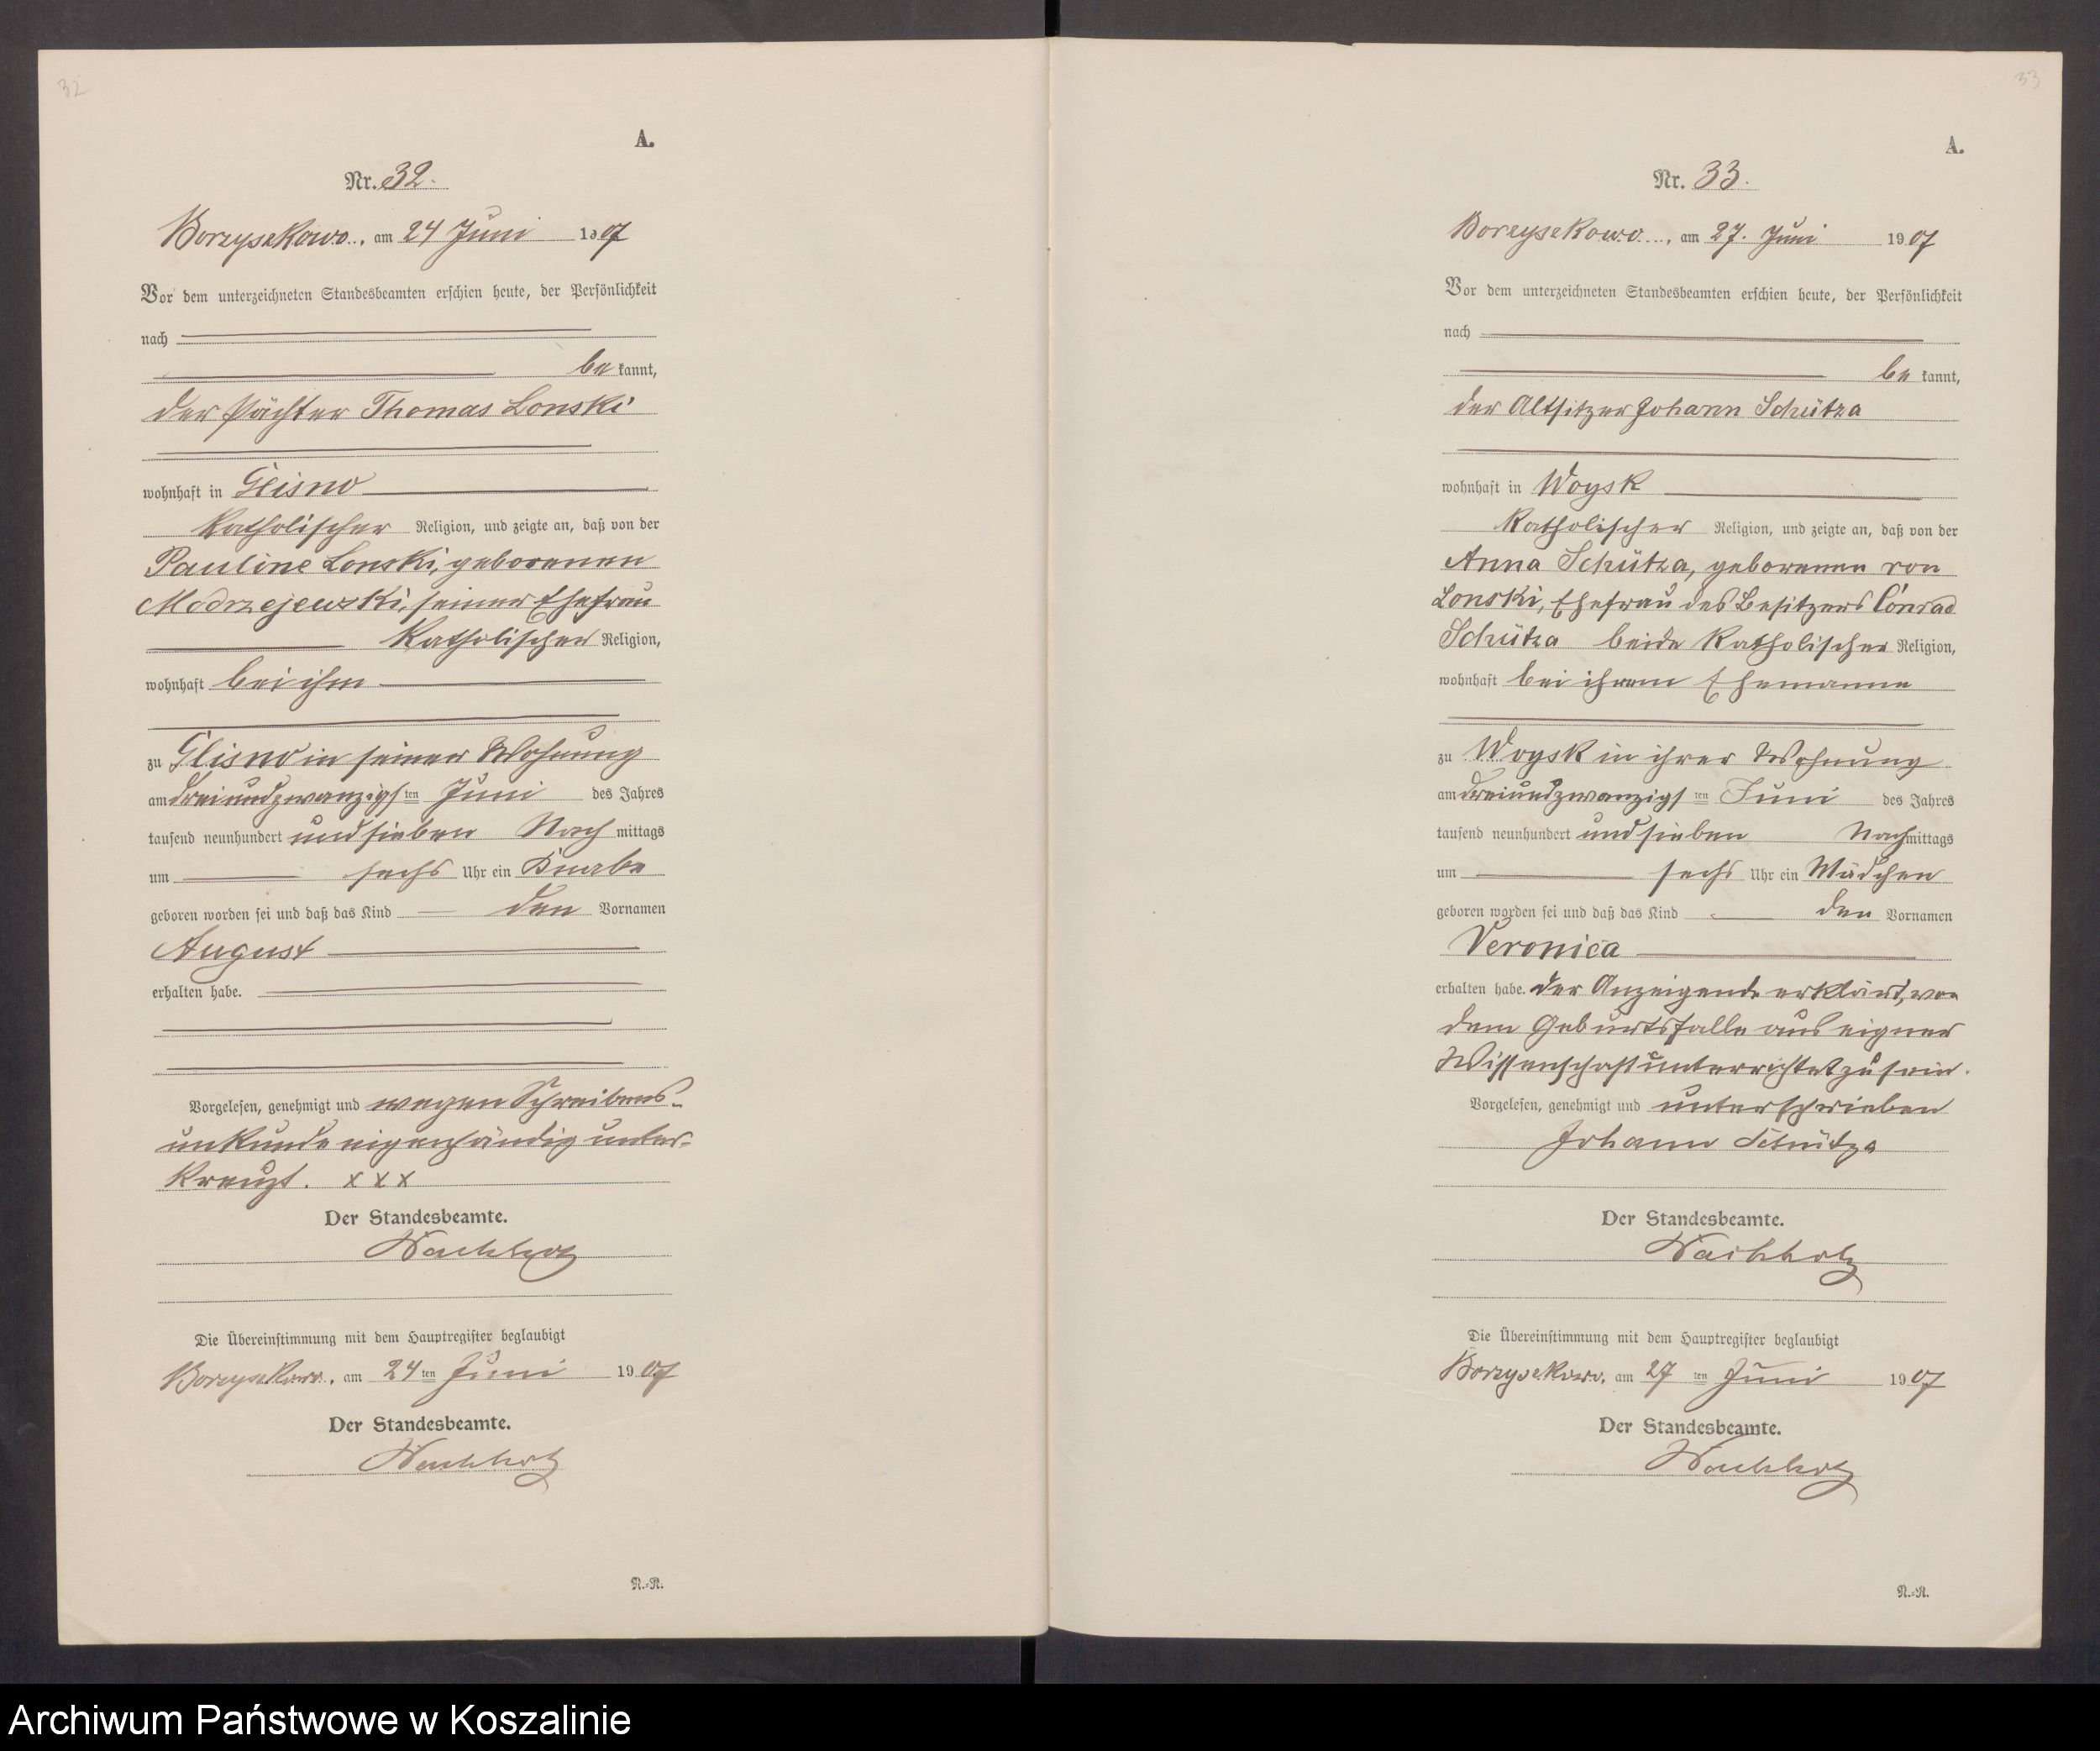 32
A.
Nr. 32.
Borzyskowo, am 24 Juni 1907
Vor dem unterzeichneten Standesbeamten erschien heute, der Persönlichkeit
nach
be kannt,
der Pächter Thomas Lonski
wohnhaft in Glisno
katholischer Religion, und zeigte an, daß von der
Pauline Lonski, geborenen
Modrzejewski, seiner Ehefrau
katholischer Religion,
wohnhaft bei ihm
zu Glisno in seiner Wohnung
am dreiundzwanzigsten Juni des Jahres
tausend neunhundert und sieben Nach mittags
um sechs Uhr ein Knabe
geboren worden sei und daß das Kind den Vornamen
August
erhalten habe.
Vorgelesen, genehmigt und wegen Schreibens-
unkunde eigenhändig unter-
kreuzt. x x x
Der Standesbeamte.
Wachholz
Die Übereinstimmung mit dem Hauptregister beglaubigt
Borzyskowo, am 24ten Juni 1907
Der Standesbeamte.
Wachholz
N.-R.
33
A.
Nr. 33.
Borzyskowo, am 27. Juni 1907
Vor dem unterzeichneten Standesbeamten erschien heute, der Persönlichkeit
nach
be kannt,
der Altsitzer Johann Schütza
wohnhaft in Woysk
katholischer Religion, und zeigte an, daß von der
Anna Schütza, geborenen von
Lonski, Ehefrau des Besitzers Conrad
Schütza beide katholischer Religion,
wohnhaft bei ihrem Ehemanne
zu Woysk in ihrer Wohnung
am dreiundzwanzigsten Juni des Jahres
tausend neunhundert und sieben Nachmittags
um sechs Uhr ein Mädchen
geboren worden sei und daß das Kind den Vornamen
Veronica
erhalten habe. Der Anzeigende erklärt, von
dem Geburtsfalle aus eigner
Wissenschaft unterrichtet zu sein.
Vorgelesen, genehmigt und unterschrieben
Johann Schütza
Der Standesbeamte.
Wachholz
Die Übereinstimmung mit dem Hauptregister beglaubigt
Borzyskowo, am 27ten Juni 1907
Der Standesbeamte.
Wachholz
N.-R.
Archiwum Państwowe w Koszalinie